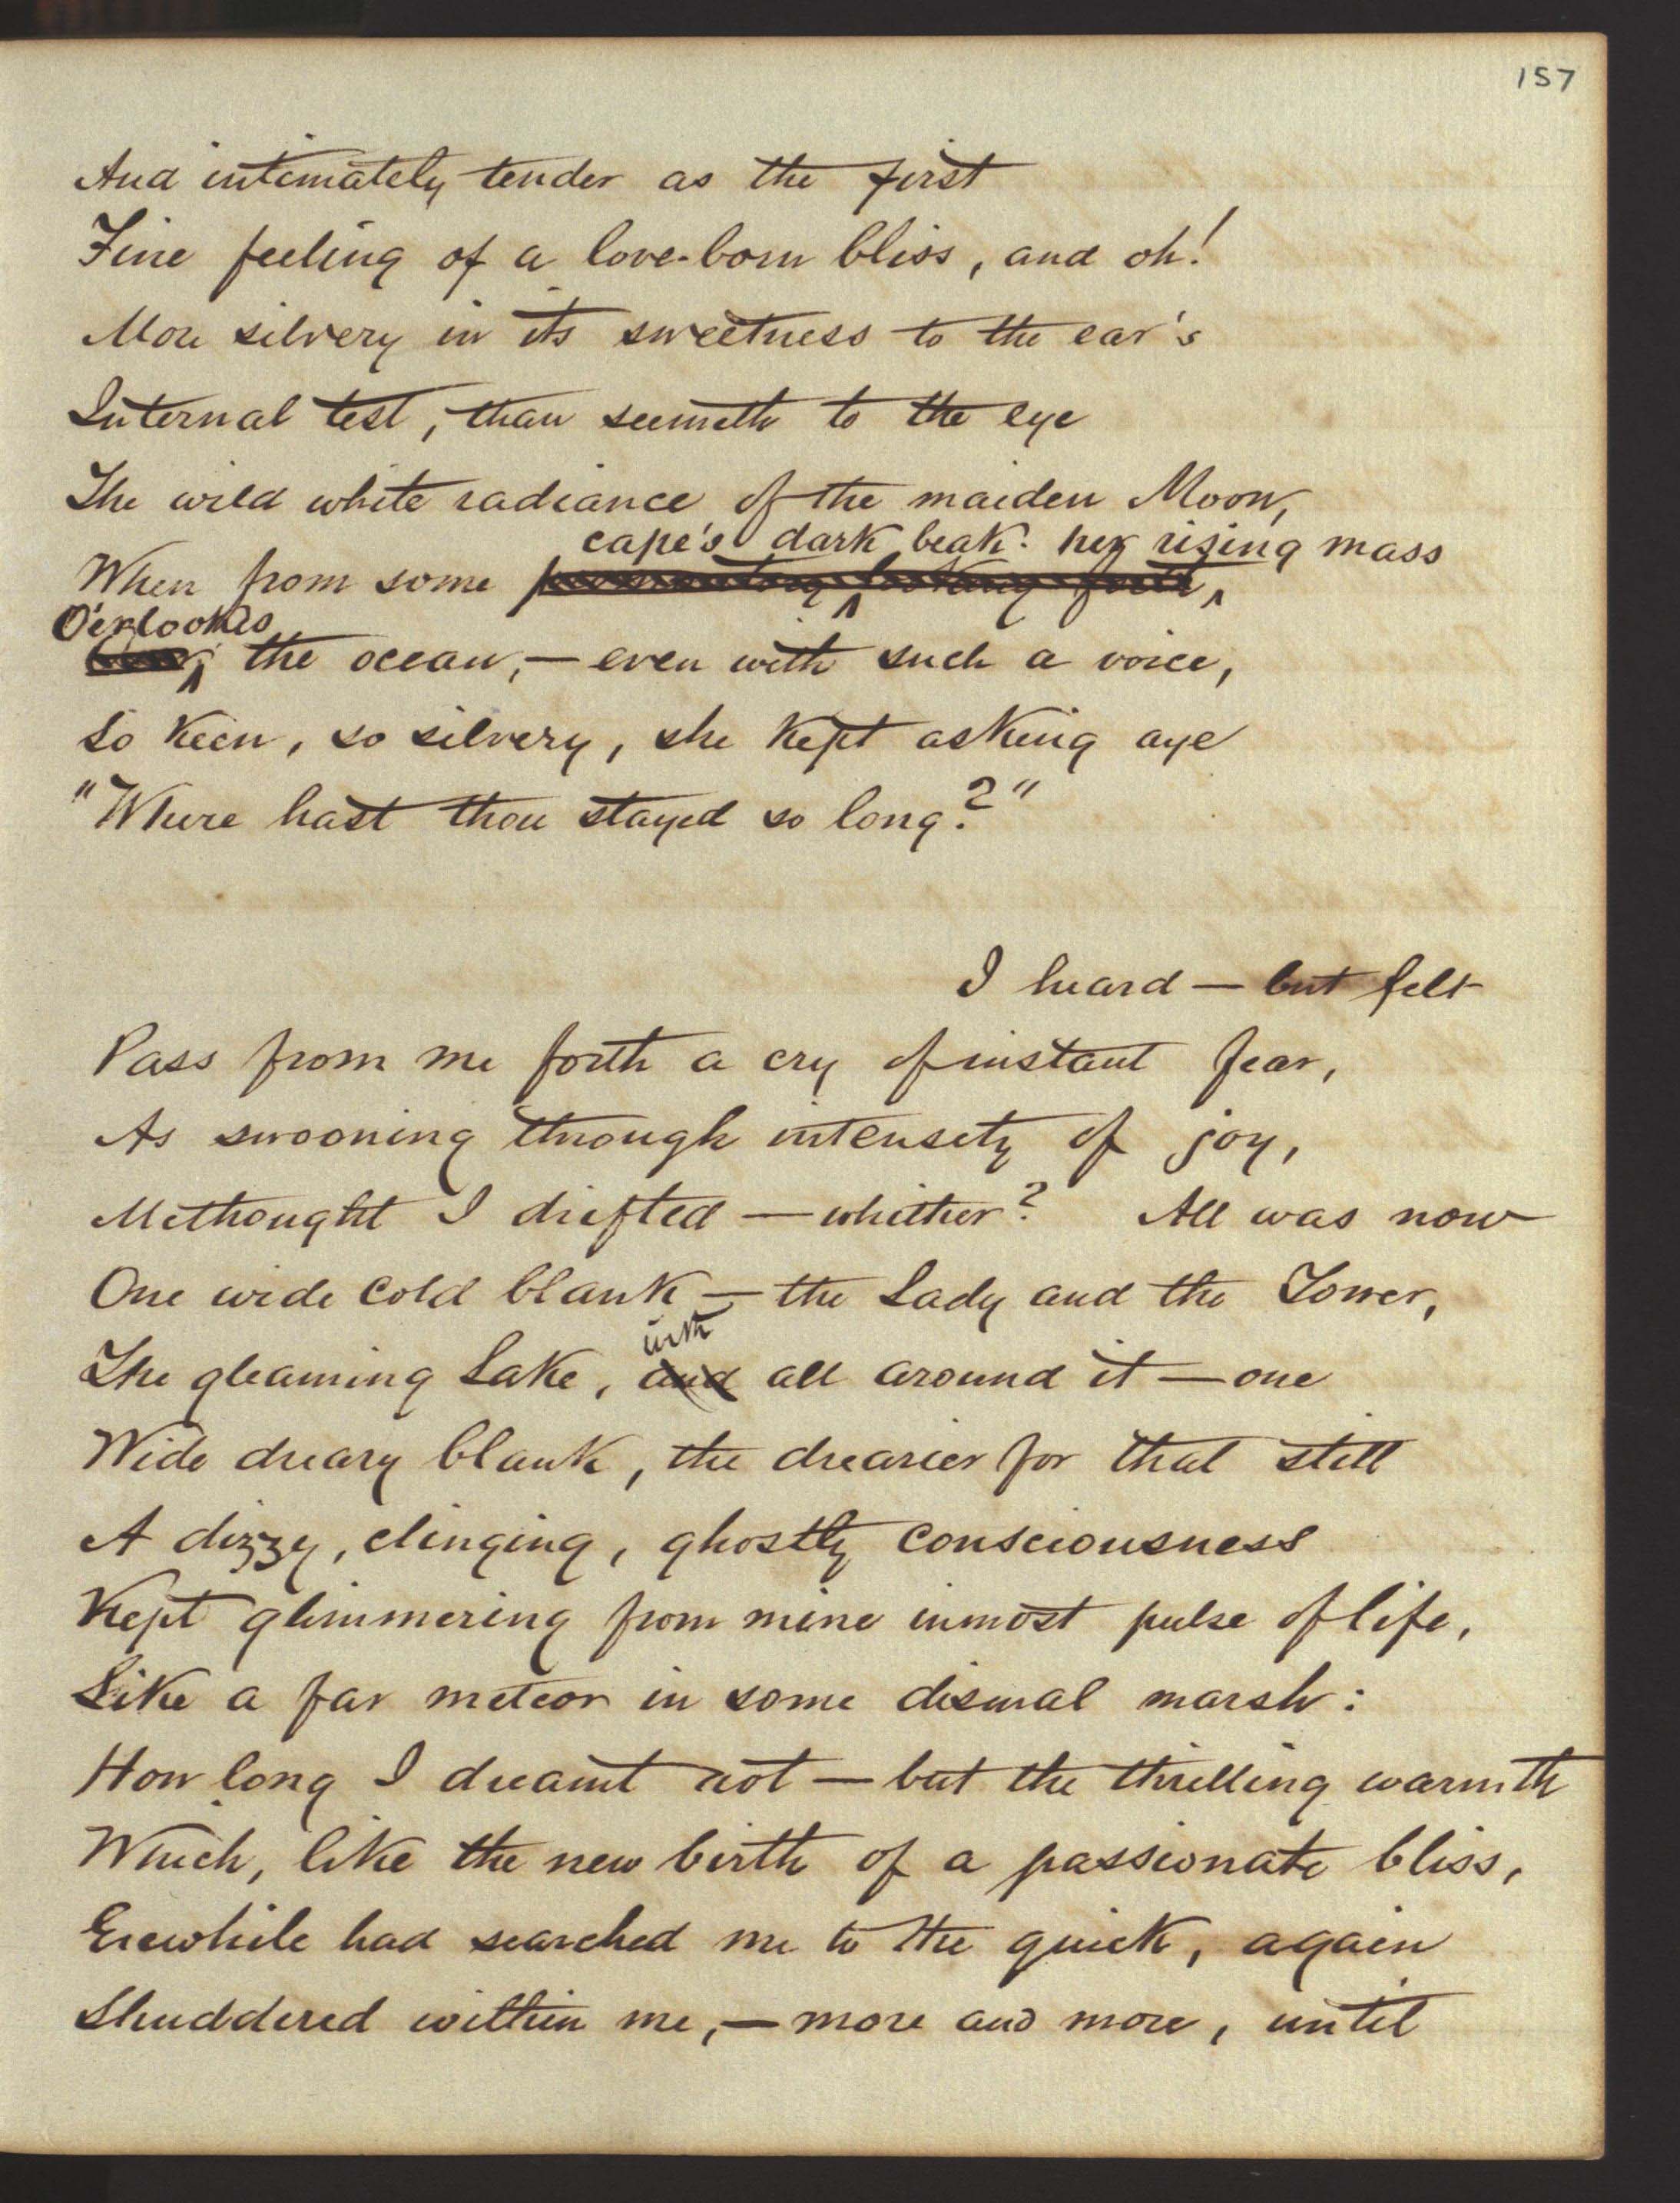 157
And intimately tender as the first
Fine feeling of a love-born bliss, and oh!
More silvery in its sweetness to the ear's
Internal test, than seemeth to the eye
The wild white radiance of the maiden Moon,
cape's dark beak her rising mass
When from some promontory looking forth,
O'erlooks
the ocean,—even with such a voice,
So keen, so silvery, she kept asking aye
"Where hast thou stayed so long?"
I heard — but felt
Pass from me forth a cry of instant fear,
As swooning through intensity of joy,
Methought I drifted — whither? All was now
One wide cold blank — the Lady and the Tower,
with
The gleaming Lake, and all around it — one
Wide dreary blank, the drearier for that still
A dizzy, clinging, ghostly consciousness
Kept glimmering from mine inmost pulse of life,
Like a far meteor in some dismal marsh:
How long I dreamt not — but the thrilling warmth
Which, like the new birth of a passionate bliss,
Erewhile had searched me to the quick, again
Shuddered within me,— more and more, until